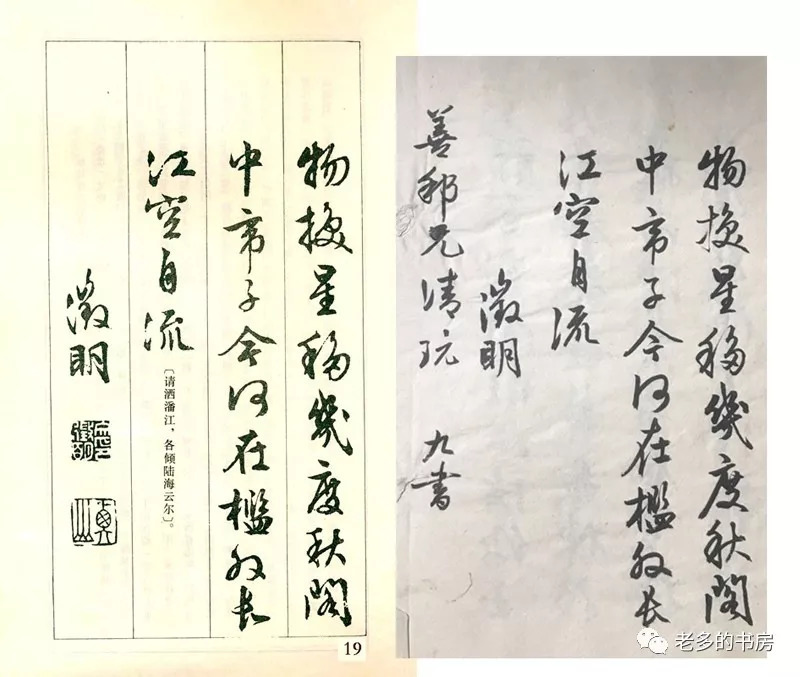 物換星移幾度秋閣
中帝子今何在檻外長
江空自流
〔请洒潘江，各倾陆海云尔〕。
徵明
19
物換星移幾度秋閣
中帝子今何在檻外長
江空自流
徵明
善邦兄清玩 九書
老多的书房